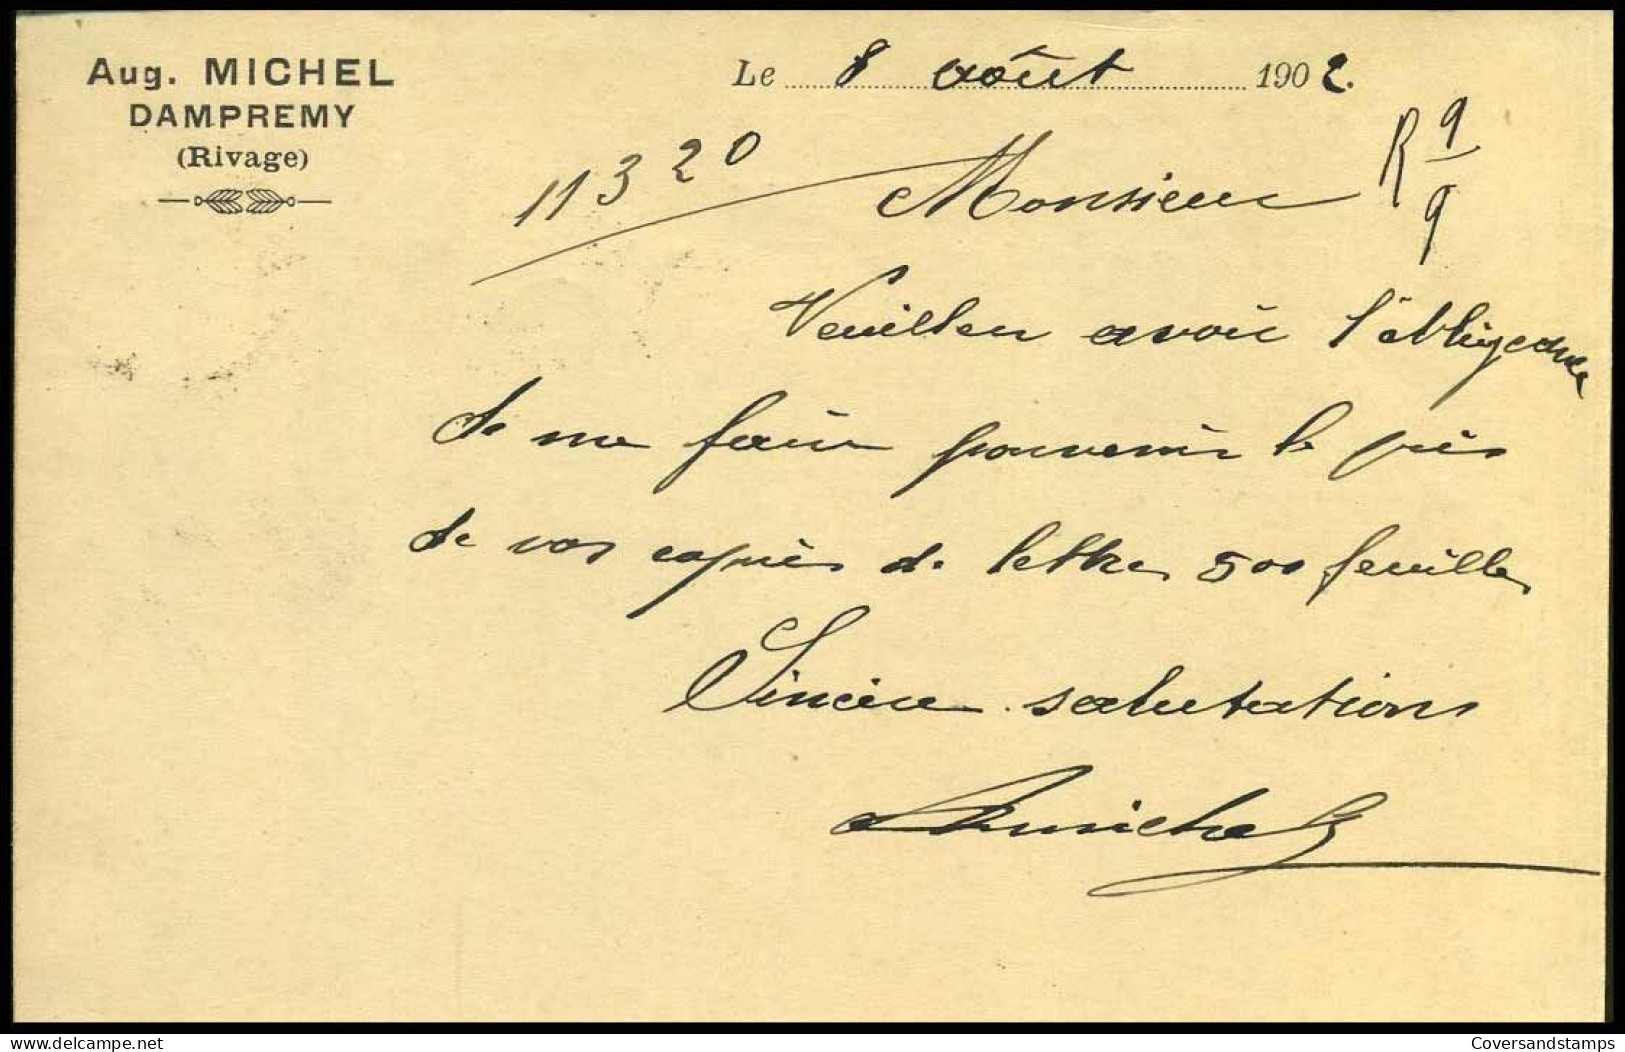 Aug. MICHEL
DAMPREMY
(Rivage)
Le 8 août 1902.
11320
R 9/9
Monsieur
Veuillez avoir l'obligeance
de me faire parvenir le prix
de vos copies de lettres 500 feuilles
Sincères salutations
AMichel
delcampe.net
Coversandstamps